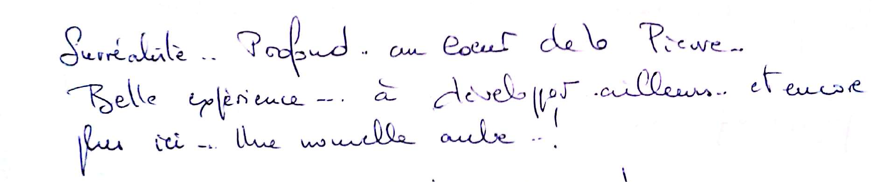 Surréaliste .. Profond .. au coeur de la Pieuve ..
Belle expérience ... à développer ailleurs .. et encore
plus ici .. Une nouvelle aube .. !